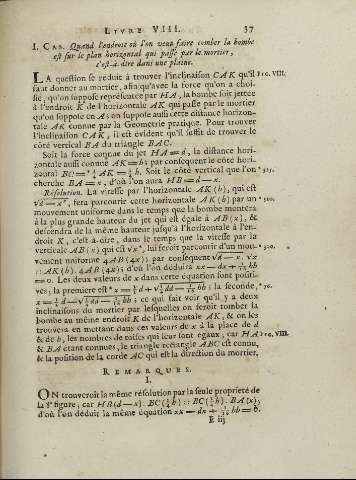 LIVRE VIII. 37
I. CAS. Quand l'endroit où l'on veut faire tomber la bombe
est sur le plan horizontal qui passe par le mortier,
c'est-à-dire dans une plaine.
LA question se réduit à trouver l'inclinaison CAK qu'il FIG. VIII.
faut donner au mortier, afin qu'avec la force qu'on a choi-
sie, qu'on suppose représentée par HA, la bombe soit jettée
à l'endroit K de l'horizontale AK qui passe par le mortier
qu'on suppose en A; on suppose aussi cette distance horizon-
tale AK connue par la Geometrie pratique. Pour trouver
l'inclinaison CAK, il est évident qu'il suffit de trouver le
côté vertical BA du triangle BAC.
Soit la force connue du jet HA = d, la distance hori-
zontale aussi connue AK = b; par conséquent le côté hori-
zontal BC = ¼ AK = ¼ b. Soit le côté vertical que l'on
cherche BA = x, d'où l'on aura HB = d — x.
Résolution. La vitesse par l'horizontale AK (b), qui est
√d — x, fera parcourir cette horizontale AK (b) par un
mouvement uniforme dans le temps que la bombe montera
à la plus grande hauteur du jet qui est égale à AB (x), &
descendra de la même hauteur jusqu'à l'horizontale à l'en-
droit K, c'est-à-dire, dans le temps que la vitesse par la
verticale AB (x) qui est √x, lui feroit parcourir d'un mou-
vement uniforme 4AB (4x); par conséquent √d — x. √x
:: AK (b). 4AB (4x); d'où l'on déduira xx — dx + 1/16 bb
= 0. Les deux valeurs de x dans cette équation sont positi-
ves; la premiere est x = ½ d + √¼ dd — 1/16 bb; la seconde,
x = ½ d — √¼ dd — 1/16 bb; ce qui fait voir qu'il y a deux
inclinaisons du mortier par lesquelles on feroit tomber la
bombe au même endroit K de l'horizontale AK, & on les
trouvera en mettant dans ces valeurs de x à la place de d
& de b, les nombres de toises qui leur sont égaux, car HA FIG. VIII.
& BA étant connues, le triangle rectangle ABC est connu,
& la position de la corde AC qui est la direction du mortier.
REMARQUES.
I.
ON trouveroit la même résolution par la seule propriété de
la 8e figure; car HB (d — x). BC (¼ b) :: BC (¼ b). BA (x),
d'où l'on déduit la même équation xx — dx + 1/16 bb = 0.
E iij